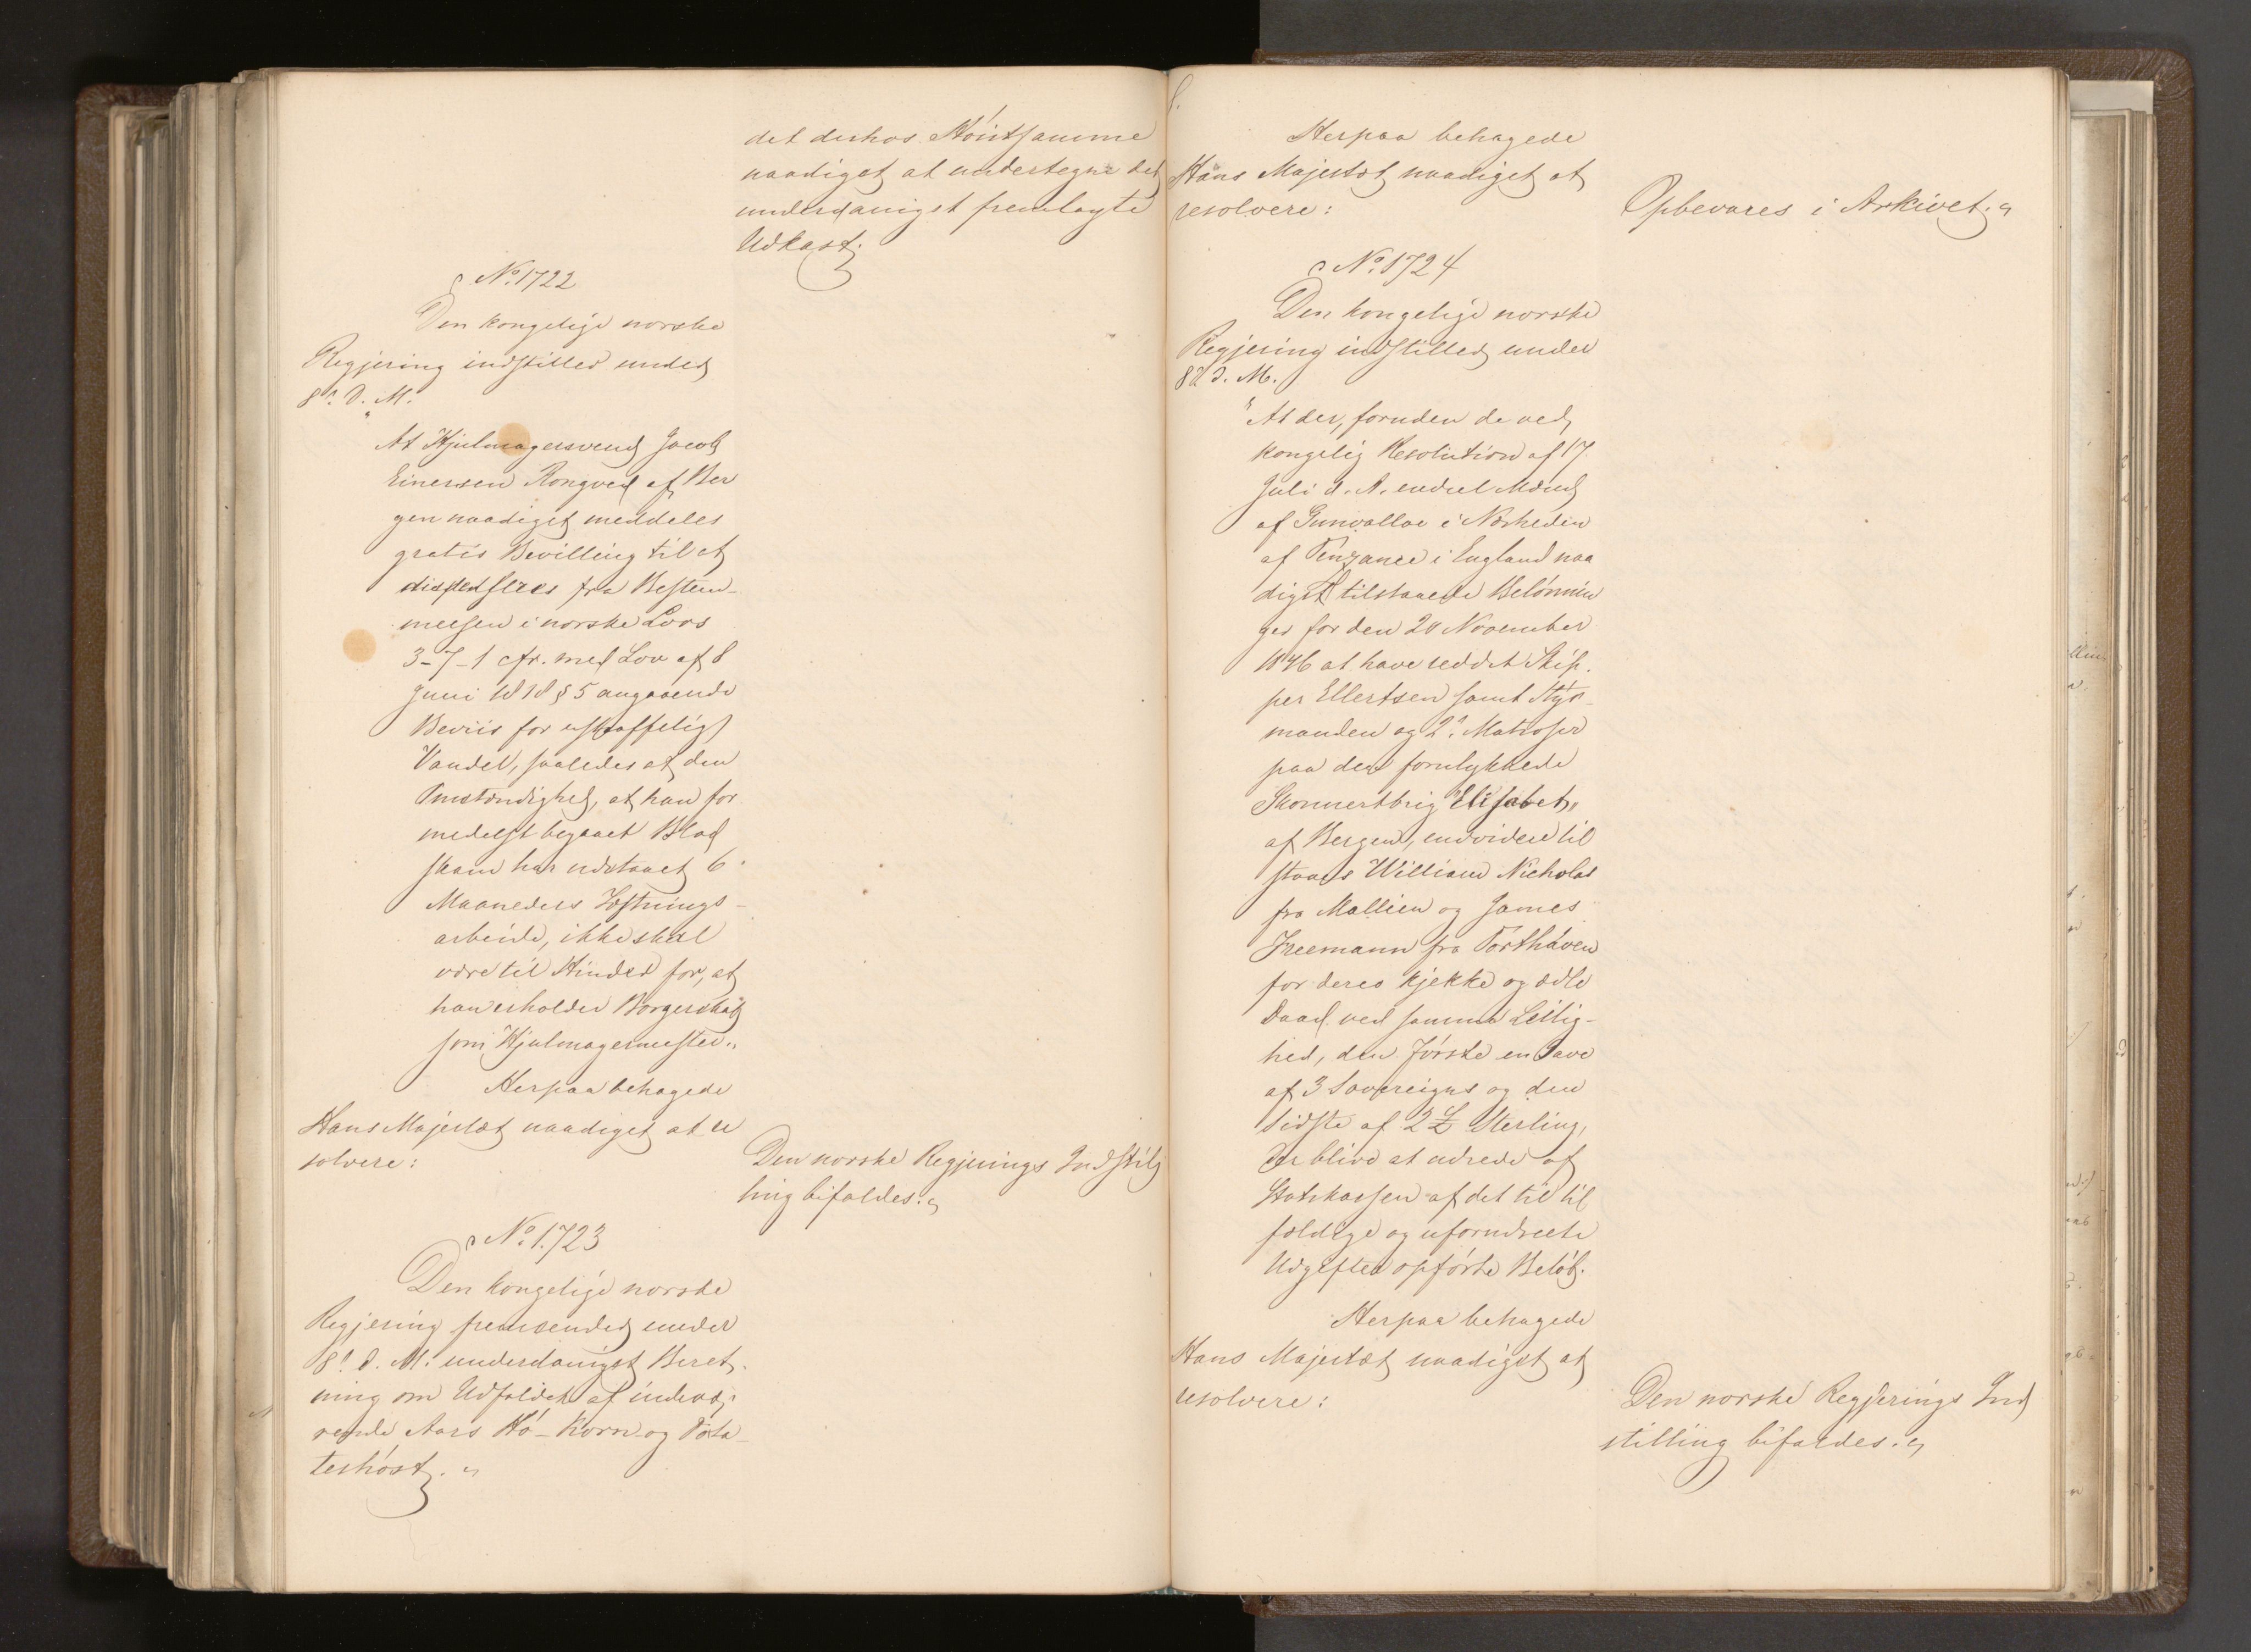 det derhos Høistsamme
naadigst at undertegne det
underdanigst fremlagte
Udkast.
No. 1722
Den kongelige norske
Regjering indstiller under
8de d. M.
"At Hjulmagersvend Jacob
Einersen Rongved af Ber
gen naadigst meddeles
gratis Bevilling til at
dispenseres fra Bestem-
melsen i norske Lovs
3-7-1 cfr. med Lov af 8
Juni 1818 § 5 angaaende
Beviis for ustraffeligt
Vandel, saaledes at den
Omstændighed, at han for
medelst begaaet Blod
skam har udstaaet 6
Maaneders Fæstnings-
arbeide, ikke skal
være til Hinder for, at
han erholder Borgerskab
som Hjulmagermester."
Herpaa behagede
Hans Majestæt naadigst at re
solvere:
Den norske Regjerings Indstil
ling bifaldes.
No. 1723
Den kongelige norske
Regjering fremsender under
8de d. M. underdanigst Beret-
ning om Udfaldet af indevæ-
rende Aars Hø- Korn- og Pota-
teshøst.
Herpaa behagede
Hans Majestæt naadigst at
resolvere:
Opbevares i Arkivet.
No. 1724
Den kongelige norske
Regjering indstiller under
8de d. M.
"At der, foruden de ved
kongelig Resolution af 17
Juli d. A. endeel Mænd
af Gunwalloe i Nærheden
af Penzance i England naa
digst tilstaaede Belønnin
ger for den 20 November
1846 at have reddet Skip-
per Ellertsen samt Styr-
manden og 2de Matroser
paa den forulykkede
Skonnertbrig "Elisabet"
af Bergen, endvidere til
staaes William Nicholas
fra Mallien og James
Freemann fra Porthaven
for deres kjekke og ædle
Daad ved samme Leilig-
hed, den Første en Gave
af 3 Sovereigns og den
Sidste af 2 £ Sterling,
der blive at udrede af
Statskassen af det til til
fældige og uforudseete
Udgifter opførte Beløb.
Herpaa behagede
Hans Majestæt naadigst at
resolvere:
Den norske Regjerings Ind
stilling bifaldes.